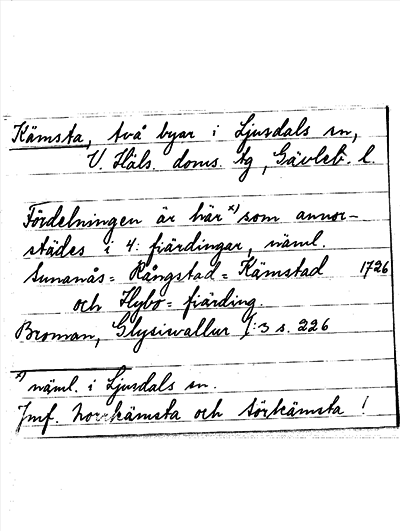 Kämsta, två byar i Ljusdals sn,
V. Häls. doms. tg, Gävleb. l.
Fördelningen är här x) som annor-
städes i 4: fjärdingar, näml.
Sunanås= Rångstad= Kämstad 1726
och Hybo= fjärding.
Broman, Glysisvallur I:3 s. 226
x) näml. i Ljusdals sn.
Jmf. Norrkämsta och Sörkämsta!